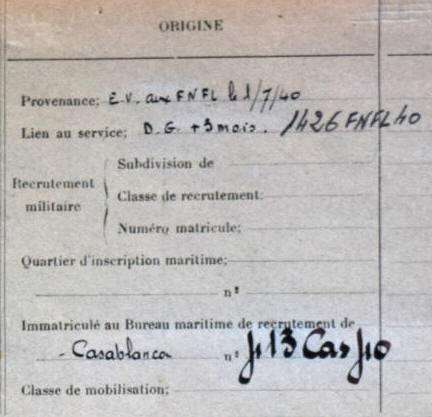 ORIGINE
Provenance; E.V. aux FNFL le 1/7/40
Lien au service; D.G. + 3 mois. 1426 FNFL 40
Subdivision de
Recrutement militaire
Classe de recrutement:
Numéro matricule;
Quartier d'inscription maritime;
nº
Immatriculé au Bureau maritime de recrutement de
- Casablanca nº 13 Cas
Classe de mobilisation;